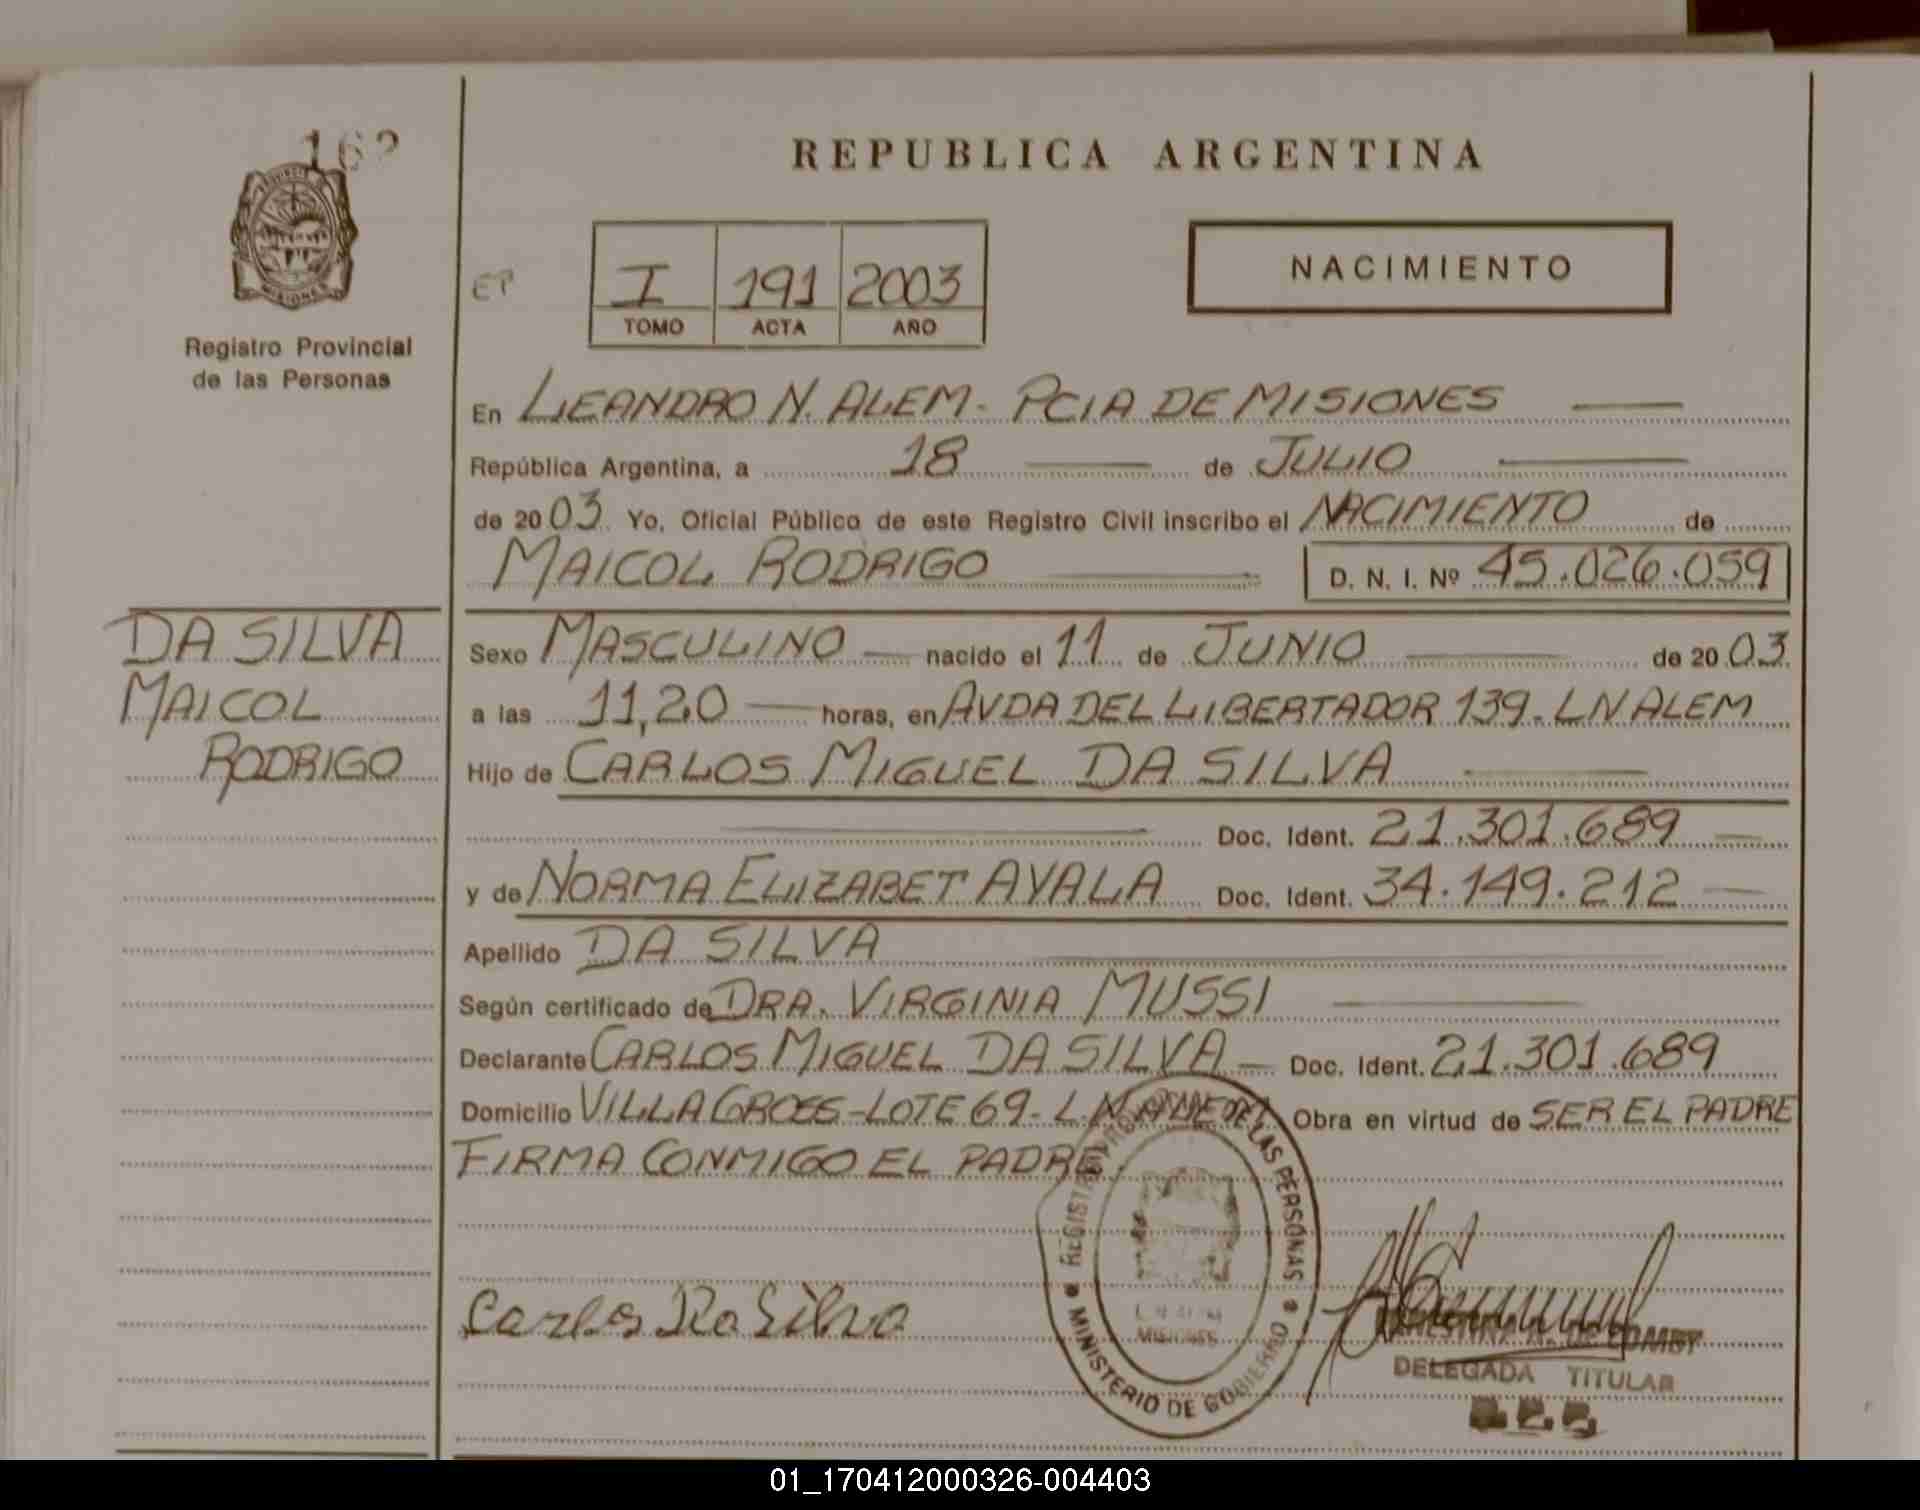 162
REPUBLICA ARGENTINA
PROVINCIA
MISIONES
Registro Provincial
de las Personas
EP
I 191 2003
TOMO ACTA AÑO
NACIMIENTO
En LEANDRO N. ALEM - PCIA DE MISIONES
República Argentina, a 18 de JULIO
de 2003 Yo, Oficial Público de este Registro Civil inscribo el NACIMIENTO de
MAICOL RODRIGO D. N. I. Nº 45.026.059
DA SILVA
MAICOL
RODRIGO
Sexo MASCULINO nacido el 11 de JUNIO de 2003
a las 11,20 horas, en AVDA DEL LIBERTADOR 139 - LN ALEM
Hijo de CARLOS MIGUEL DA SILVA
Doc. Ident. 21.301.689
y de NORMA ELIZABET AYALA Doc. Ident. 34.149.212
Apellido DA SILVA
Según certificado de DRA. VIRGINIA MUSSI
Declarante CARLOS MIGUEL DA SILVA Doc. Ident. 21.301.689
Domicilio VILLA GROSS - LOTE 69 - L.N. ALEM Obra en virtud de SER EL PADRE
FIRMA CONMIGO EL PADRE.
REGISTRO PROVINCIAL DE LAS PERSONAS
MINISTERIO DE GOBIERNO
MISIONES
Carlos Da Silva
DELEGADA TITULAR
01_170412000326-004403